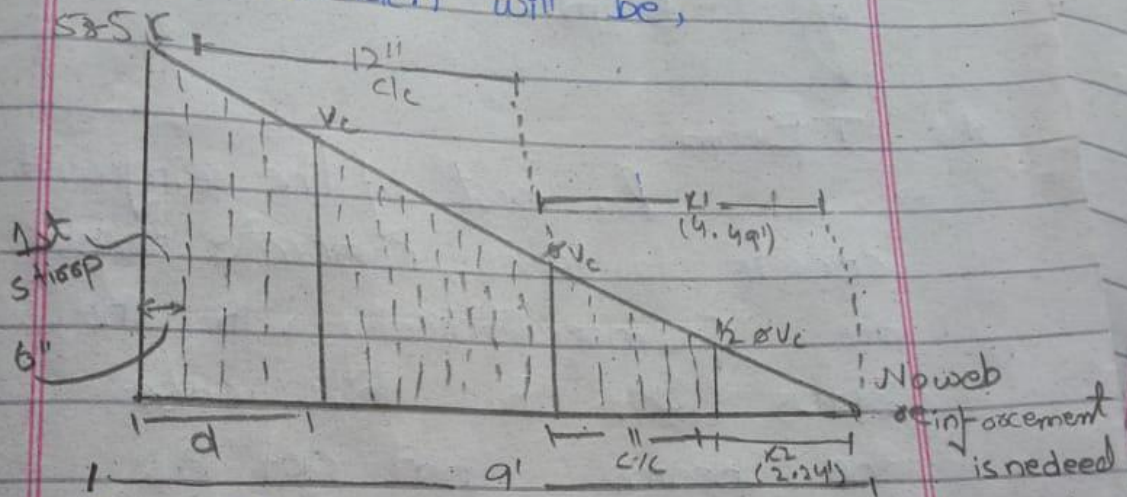 will be,
58.5 K
12"
c/c
Vc
x1
(4.49')
øVc
1st
stirrp
6"
1/2 øVc
No web
reinforcement
is nedeed
d
11
c/c
x2
(2.24')
9'